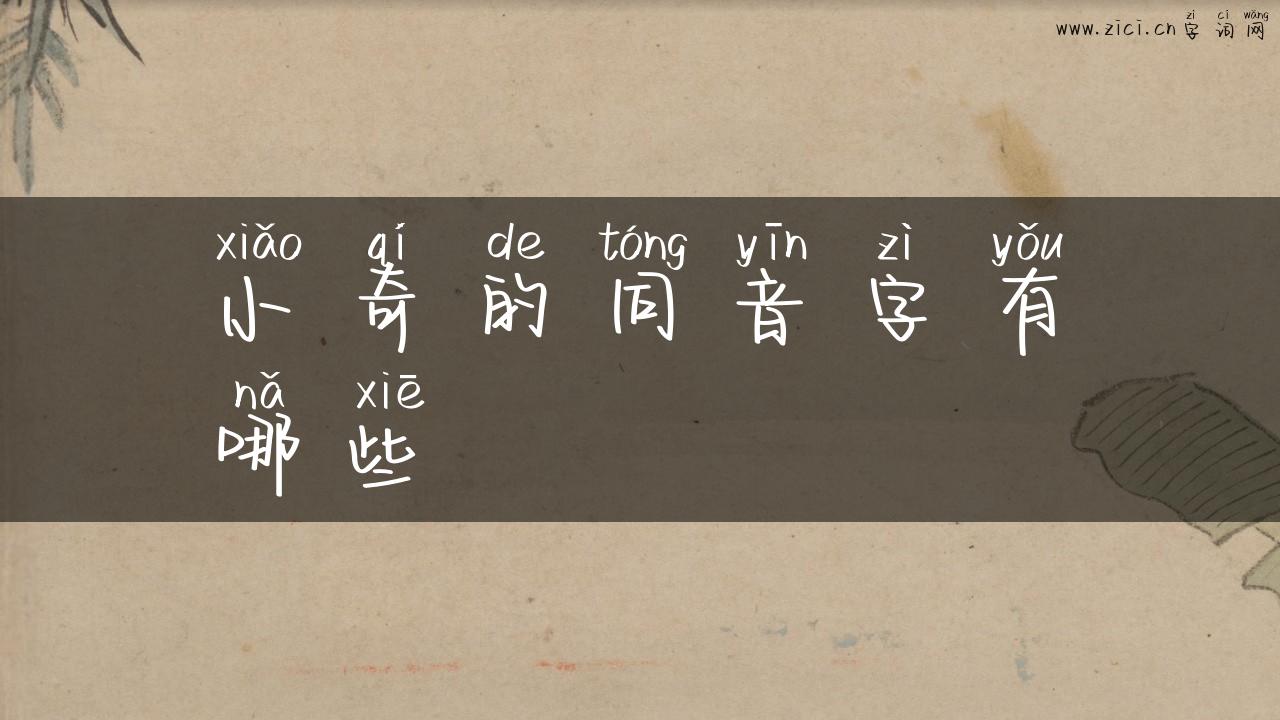 zì cí wǎng
www.zici.cn 字 词 网
xiǎo qí de tóng yīn zì yǒu
小 奇 的 同 音 字 有
nǎ xiē
哪 些